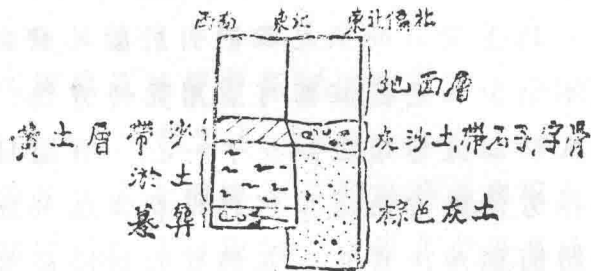 西南 東北 東北偏北
地面層
黄土層 帶沙
灰沙土,帶石子字骨
淤土
墓葬
棕色灰土